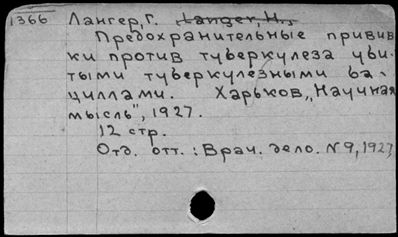 1366 Лангер, Г. Langer, H.,
Предохранительные привив
ки против туберкулеза уби-
тыми туберкулезными ба-
циллами. Харьков, „Научная
мысль", 1927.
12 стр.
Отд. отт.: Врач. дело. №9, 1927,